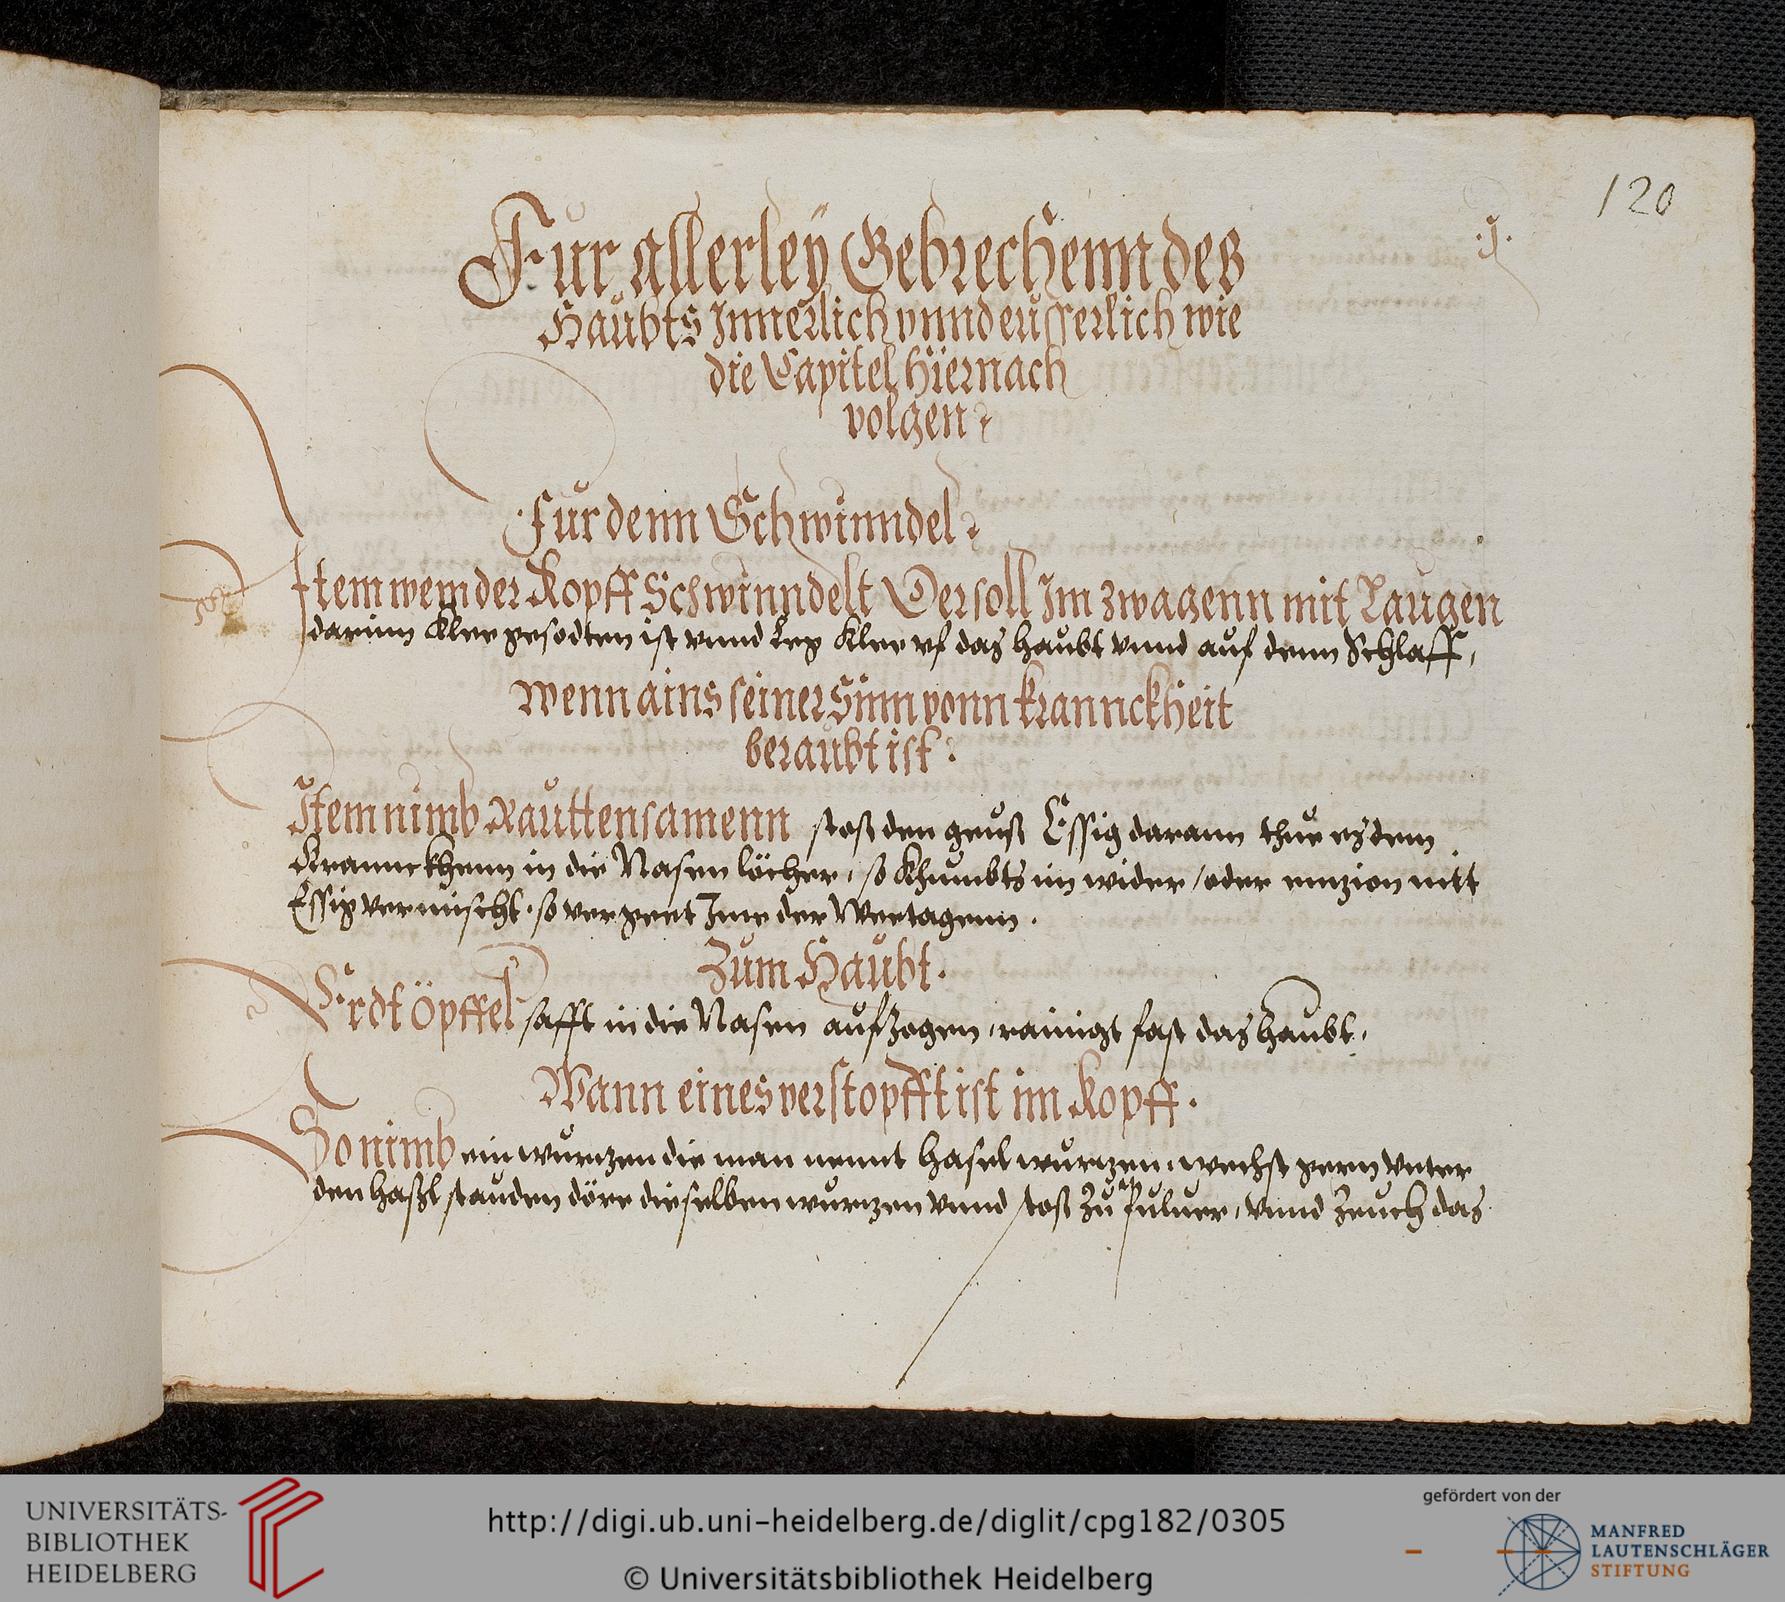 120
.j.
Fur allerley Gebrechenn des
Haubts Innerlich vnnd eusserlich wie
die Capitel hiernach
volgen
Fur denn Schwinndel
Item wem der Kopff Schwinndelt Der soll Im zwagenn mit Laugen
darinn Klee gesodten ist vnnd leg Klee vf das haubt vnnd auf denn Schlaff,
Wenn ains seiner Sinn vonn kranckheit
beraubt ist
Item nimb Rauttensamenn stoß den geuß Essig darann thue es dem
Kranckhenn in die Nasen löcher, so Khumbts im wider / oder mit
Essig vermischt. so vergeet Ime der Weetagenn.
Zum Haubt.
Erdt Öpffel safft in die Nasen aufzogen, rainigt fast das haubt,
Wann eines verstopfft ist im Kopff.
So nimb ein wurtzen die man nennt hasel wurtzen, wechst gern vnter
den haßl stauden döre dieselben wurtzen vnnd stoß zu Puluer, vnnd zeuch das
UNIVERSITÄTS-
BIBLIOTHEK
HEIDELBERG
http://digi.ub.uni-heidelberg.de/diglit/cpg182/0305
© Universitätsbibliothek Heidelberg
gefördert von der
MANFRED
LAUTENSCHLÄGER
STIFTUNG